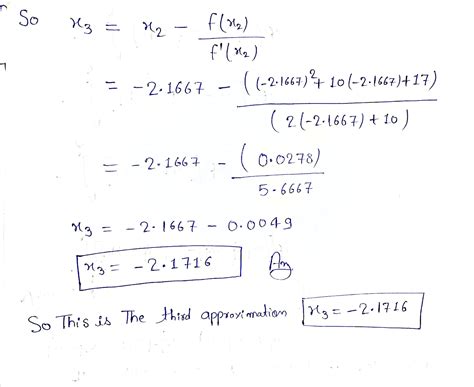 So x₃ = x₂ - f(x₂) / f'(x₂)
= -2.1667 - ((-2.1667)² + 10(-2.1667)+17) / (2(-2.1667)+10)
= -2.1667 - (0.0278) / 5.6667
x₃ = -2.1667 - 0.0049
x₃ = -2.1716 Ans
So This is The third approximation x₃ = -2.1716